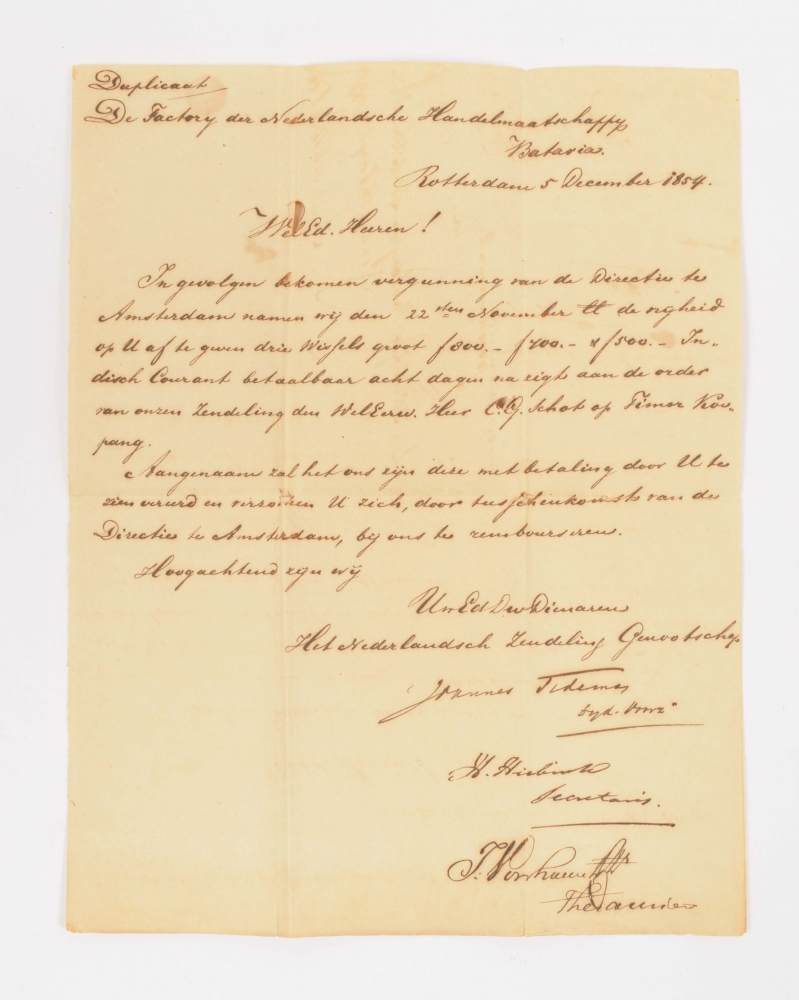 Duplicaat
De Factory der Nederlandsche Handelmaatschappy
Batavia.
Rotterdam 5 December 1854.
WelEd. Heeren!
Ingevolgen bekomen vergunning van de Directie te
Amsterdam namen wij den 22sten November ll de vrijheid
op U af te geven drie Wissels groot f800.- f700.- & f500.- In-
disch Courant betaalbaar acht dagen na zigt aan de order
van onzen Zendeling den WelEerw. Heer C.G. Schot op Timor Koe-
pang.
Aangenaam zal het ons zijn deze met betaling door U te
zien vereerd en verzoeken U zich, door tusschenkomst van de
Directie te Amsterdam, bij ons te rembourseren.
Hoogachtend zijn wij
UwEdDwDienaren
Het Nederlandsch Zendeling Genootschap
Joannes Tideman
tijd. Voorz.
H. Hiebink
Secretaris.
J. Voorhoeve
Thesaurier